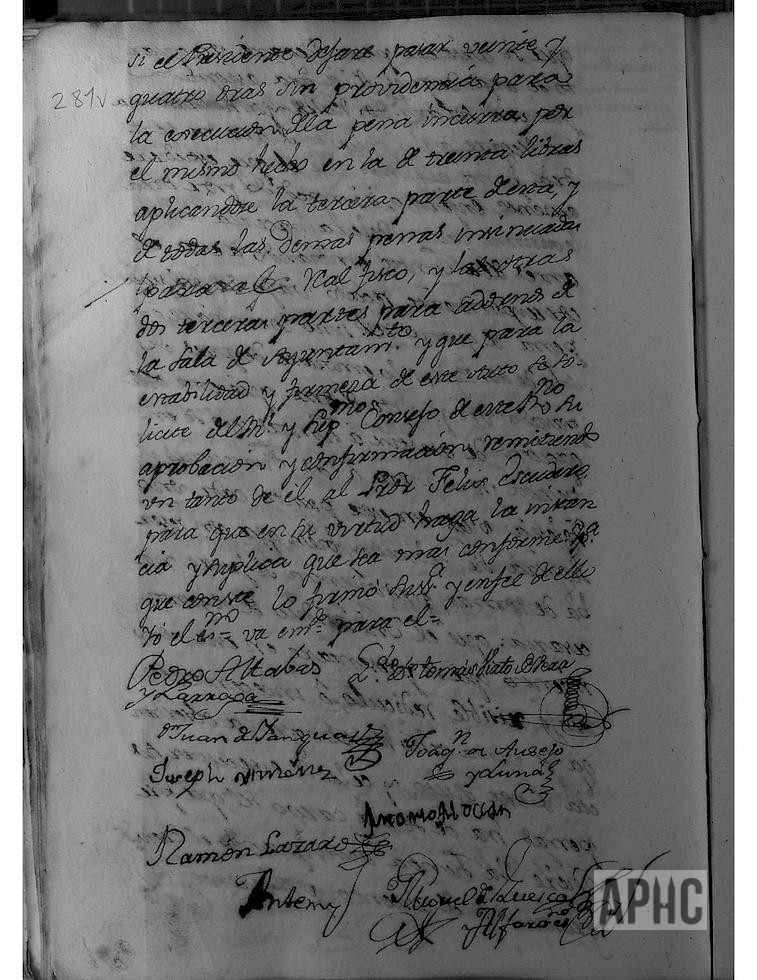 281v
si el Presidente dejare pasar veinte y
quatro dias sin providencia para
la execucion dela pena incurra por
el mismo hecho en la de treinta libras
aplicandose la tercera parte de esta, y
de todas las demas penas insinuadas
para el Real fisco, y las otras
dos terceras partes para adornos de
la Sala de Ayuntamto. y que para la
estabilidad y firmeza de este Auto se so-
licite del Rl. y Supmo. Consejo de este Rno su
aprobacion y confirmacion, remitiendo
un tanto de el, al Pror Felix Escudero
para que en su virtud haga la instan
cia y suplica que sea mas conforme Ypa.
que conste lo firmó Sussa. y enfee de ello
Yó el ssno= va emdo. para el=
Pedro Altabas
y Larraga
Juan de Sanguas
Joaqn. de Ausejo
y Luna
Joseph Ximenez
Antonio
Ramon Lazaro
Antemi
Miguel de Huesca
y Alfaro
APHC